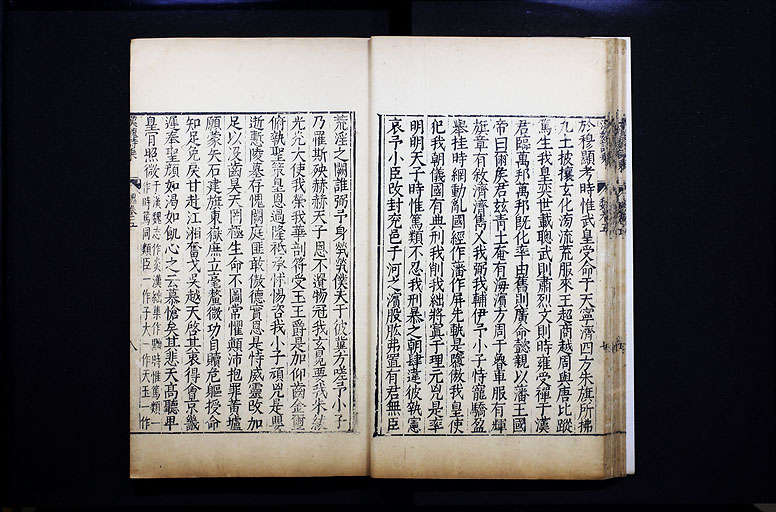 於穆顯考時惟武皇受命于天寧濟四方朱旗所拂
九土披攘玄化滂流荒服來王超商越周與唐比蹤
篤生我皇奕世載聰武則肅烈文則時雍受禪于漢
君臨萬邦萬邦既化率由舊則廣命懿親以藩王國
帝曰爾侯君茲青土奄有海濱方周于魯車服有輝
旗章有敘濟濟儁乂我弼我輔伊予小子恃寵驕盈
舉挂時網動亂國經作藩作屏先軌是隳傲我皇使
犯我朝儀國有典刑我削我絀將寘于理元兇是率
明明天子時惟篤類不忍我刑暴之朝肆違彼執憲
哀予小臣改封兗邑于河之濱股肱弗置有君無臣
荒淫之闕誰弼予身煢煢僕夫于彼冀方嗟予小子
乃罹斯殃赫赫天子恩不遺物冠我玄冕要我朱紱
光光大使我榮我華剖符受玉王爵是加仰齒金璽
俯執聖策皇恩過隆祗承怵惕咨我小子頑兇是嬰
逝慙陵墓存愧闕庭匪敢傲德寔恩是恃威靈改加
足以沒齒昊天罔極生命不圖常懼顛沛抱罪黃壚
願蒙矢石建旗東嶽庶立毫釐微功自贖危軀授命
知足免戾甘赴江湘奮戈吳越天啓其衷得會京畿
遲奉聖顏如渴如飢心之云慕愴矣其悲天高聽卑
皇肯照微
于漢魏志作炎漢絀集作黜時惟篤類一
作時篤同類臣一作子大一作天玉一作